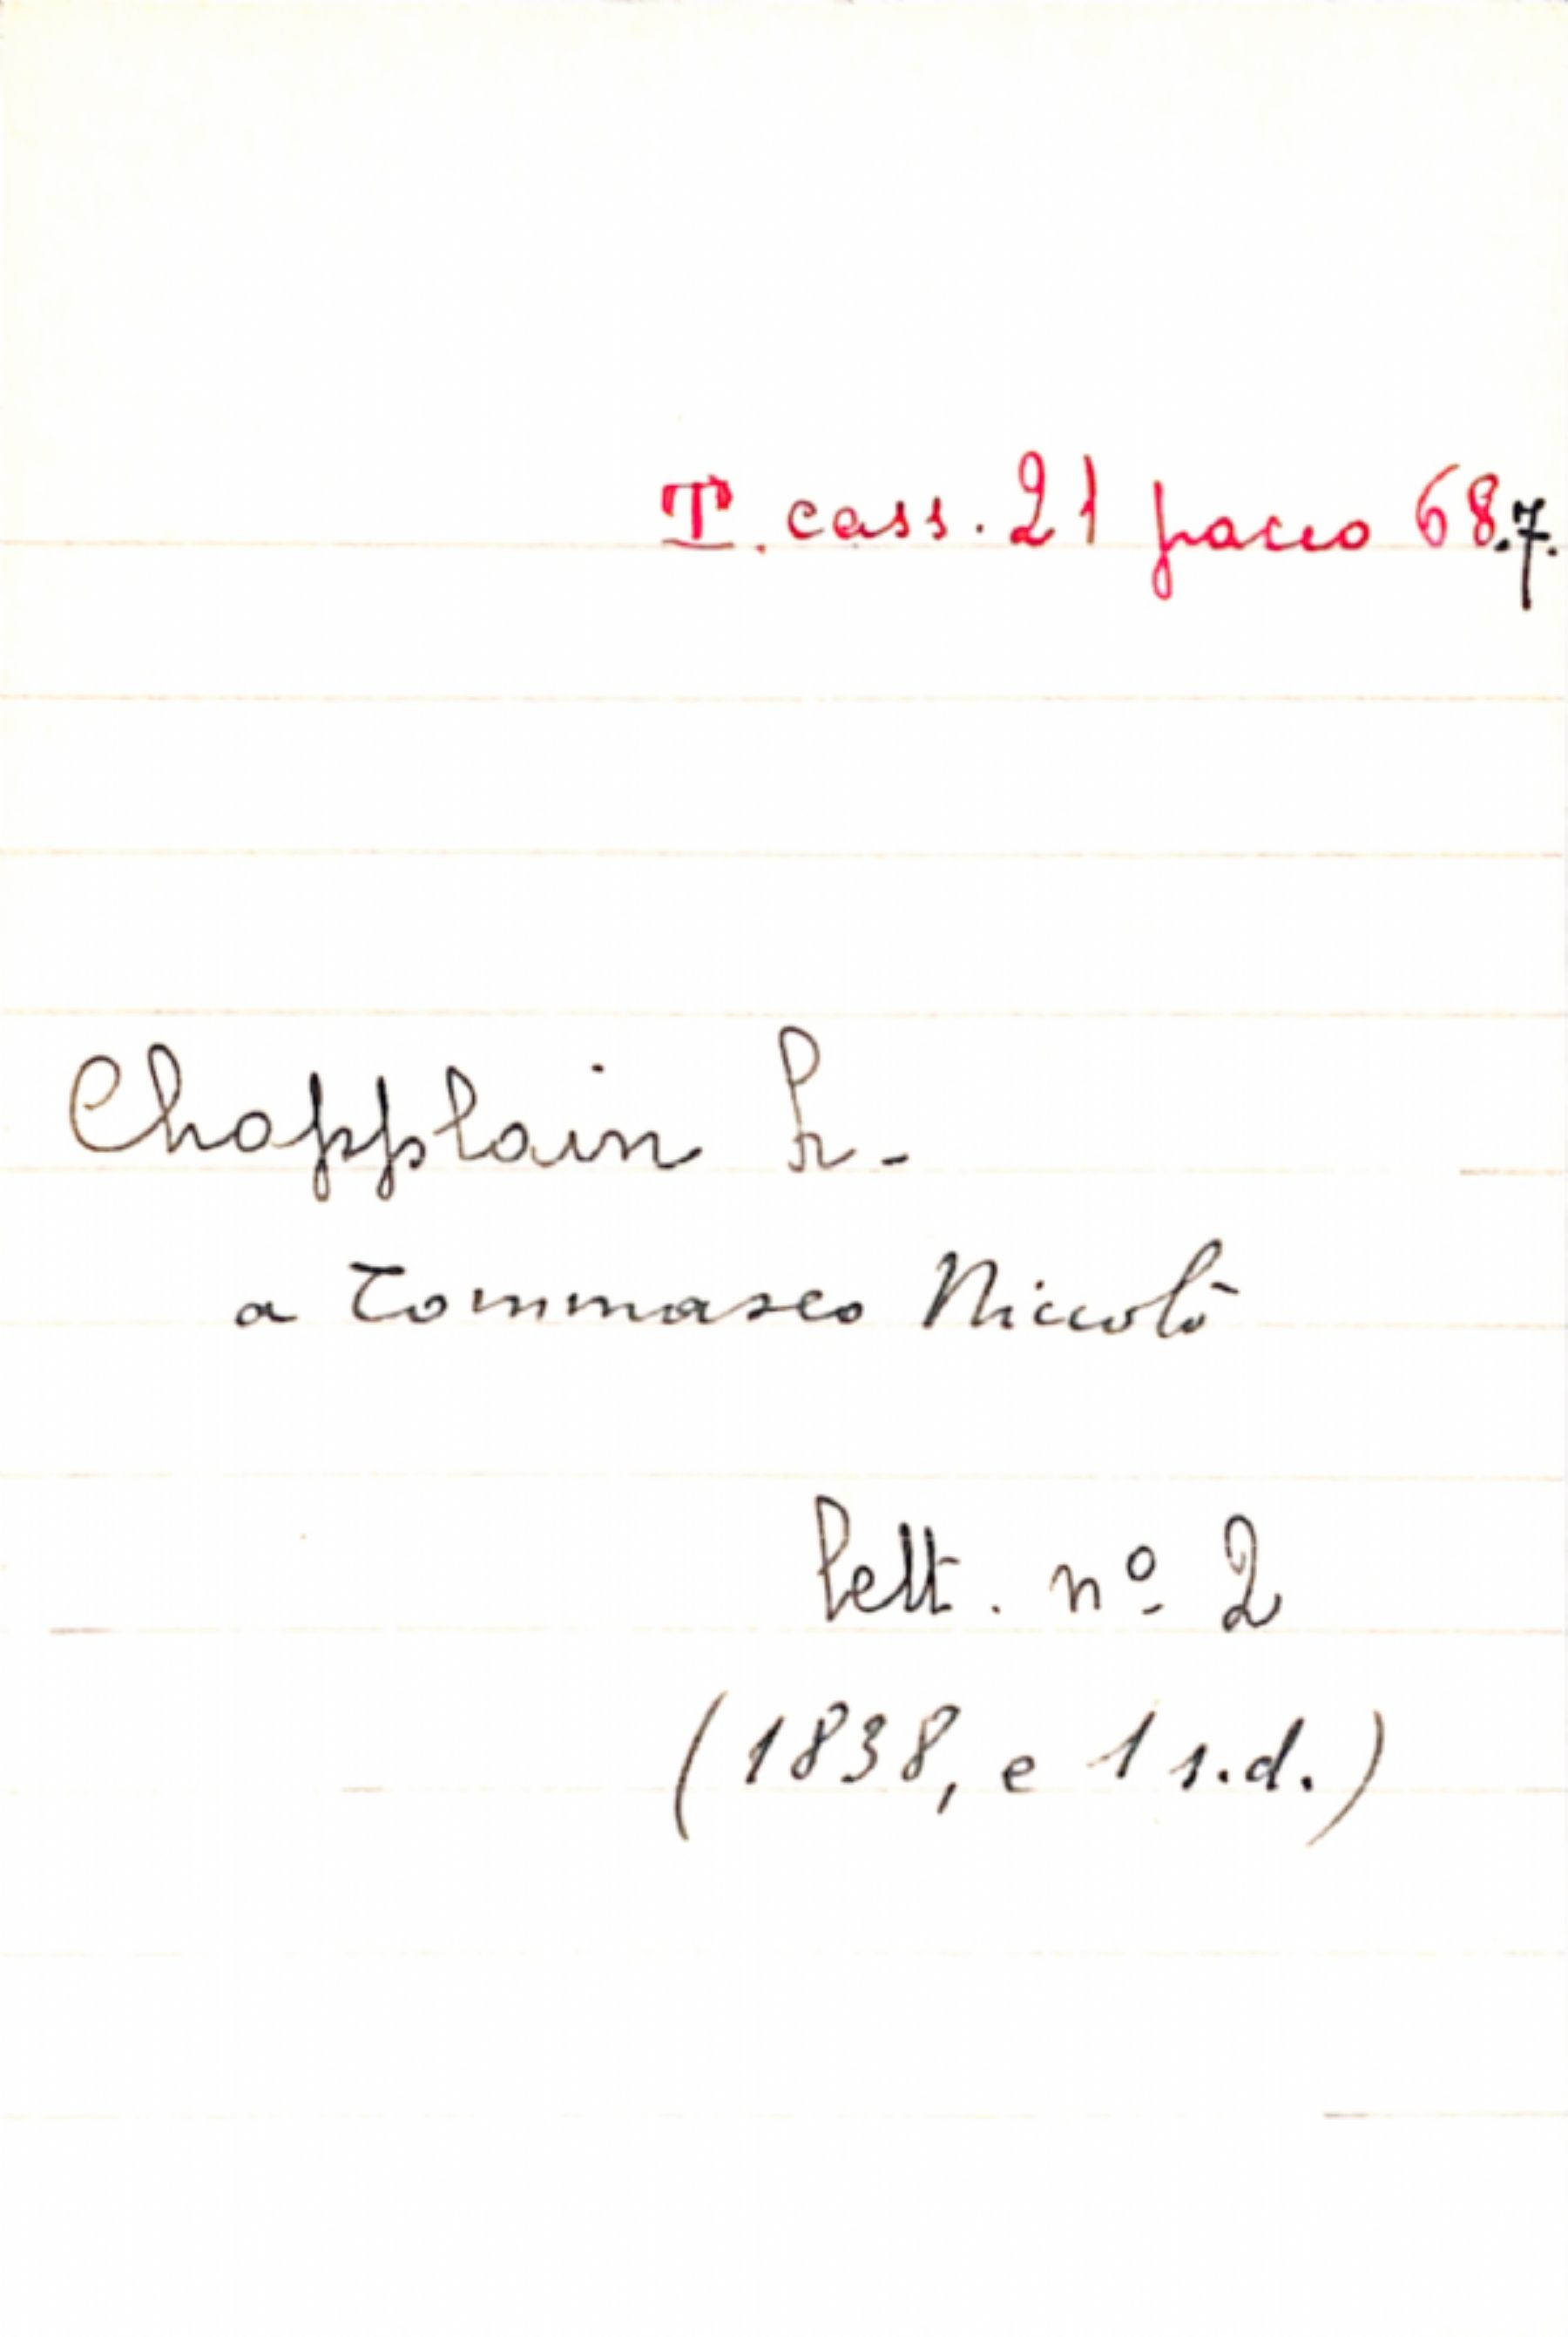 T. cass. 21 pacco 68.7.
Chapplain L.
a Tommaseo Niccolò
Lett. nº 2
(1838, e 1 s.d.)